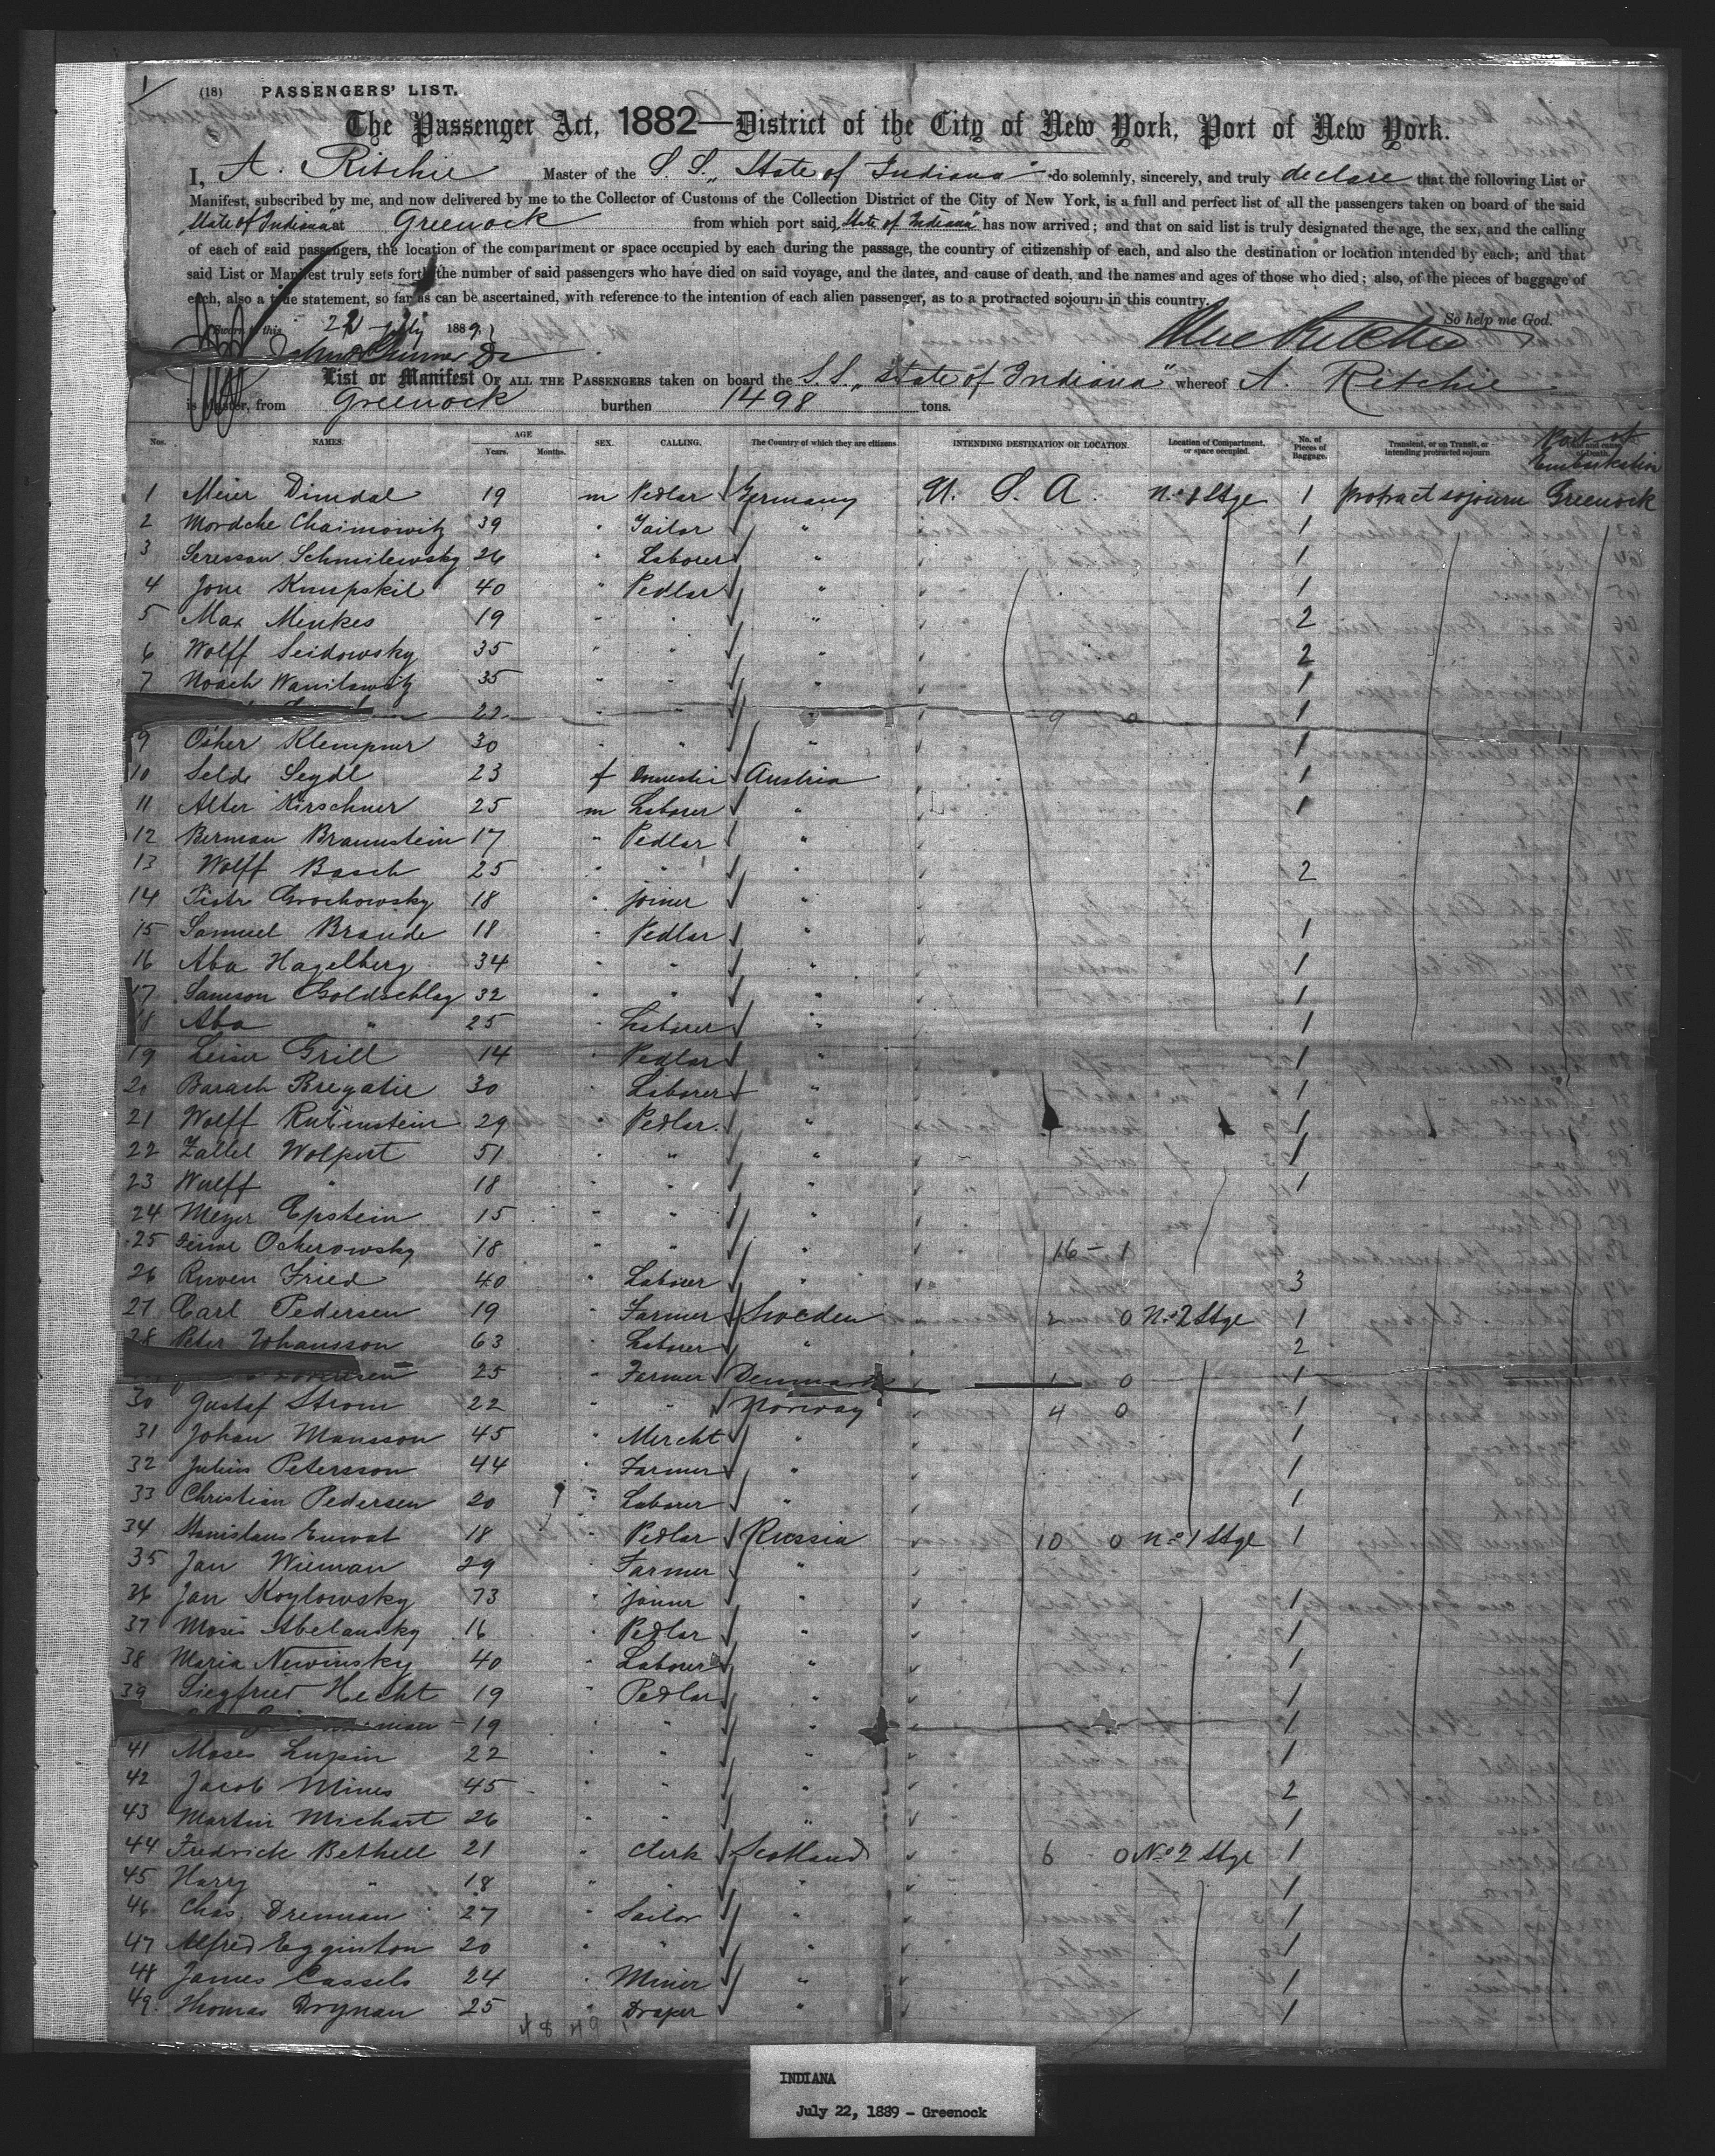 1
(18) PASSENGERS' LIST.
The Passenger Act, 1882—District of the City of New York, Port of New York.
I, A. Ritchie Master of the S. S. "State of Indiana" do solemnly, sincerely, and truly declare that the following List or
Manifest, subscribed by me, and now delivered by me to the Collector of Customs of the Collection District of the City of New York, is a full and perfect list of all the passengers taken on board of the said
"State of Indiana" at Greenock from which port said "State of Indiana" has now arrived; and that on said list is truly designated the age, the sex, and the calling
of each of said passengers, the location of the compartment or space occupied by each during the passage, the country of citizenship of each, and also the destination or location intended by each; and that
said List or Manifest truly sets forth the number of said passengers who have died on said voyage, and the dates, and cause of death, and the names and ages of those who died; also, of the pieces of baggage of
each, also a true statement, so far as can be ascertained, with reference to the intention of each alien passenger, as to a protracted sojourn in this country.
So help me God.
Sworn to this 22 July 1889
List or Manifest OF ALL THE PASSENGERS taken on board the S.S. "State of Indiana" whereof A. Ritchie
is Master, from Greenock burthen 1498 tons.
Nos. NAMES. AGE Years. Months. SEX. CALLING. The Country of which they are citizens. INTENDING DESTINATION OR LOCATION. Location of Compartment, or space occupied. No. of Pieces of Baggage. Transient, or on Transit, or intending protracted sojourn. Port of Embarkation
1 Meier Dimdal 19 m Pedlar Germany U. S. A. No 1 Stge 1 protract sojourn Greenock
2 Mordche Chaimowitz 39 " Tailor " 1
3 Schmilewsky 26 " Laborer " 1
4 40 " Pedlar " 1
5 Max Minkes 19 " " " 2
6 Wolff Seidowsky 35 " " " 2
7 Noach 35 " " " 1
22 " " " 9 0 1
9 Osher Klempner 30 " " " 1
10 Selde Seydl 23 f Domestic Austria 1
11 Alter Kirschner 25 m Laborer " 1
12 Berman Braunstein 17 " Pedlar "
13 Wolff Basch 25 " " " 2
14 Piotr Grochowsky 18 " joiner "
15 Samuel Braude 18 " Pedlar " 1
16 Aba Hagelberg 34 " " " 1
17 Samson Goldschlag 32 " " " 1
18 Aba " 25 " Laborer " 1
19 Leiser Grill 14 " Pedlar " 1
20 Barach Bregatie 30 " Laborer " 1
21 Wolff Rubinstein 29 " Pedlar " 1
22 Zallel Wolpert 51 " " " 1
23 Wulff " 18 " " " 1
24 Meyer Epstein 15 " " "
25 Ocherowsky 18 " " " 16 - 1
26 Ruwen Fried 40 " Laborer " 3
27 Carl Pedersen 19 " Farmer Sweden 2 0 No 2 Stge 1
28 Peter Johansson 63 " Laborer " 2
25 " Farmer Denmark 1 0 1
30 Gustaf Strom 22 " " Norway 4 0 1
31 Johan Mansson 45 " Mercht " 1
32 Julius Petersson 44 " Farmer " 1
33 Christian Pedersen 20 " Laborer " 1
34 Stanislaus 18 " Pedlar Russia 10 0 No 1 Stge 1
35 Jan Wieman 29 Farmer "
36 Jan Koylowsky 73 " joiner " 1
37 Moses Abelansky 16 " Pedlar " 1
38 Maria Newinsky 40 " Laborer " 1
39 Siegfried Hecht 19 " Pedlar " 1
19 " " " 1
41 Moses Lupin 22 " " " 1
42 Jacob Mines 45 " " " 2
43 Martin Michart 26 " " " 1
44 Fredrick Bethell 21 " Clerk Scotland 6 0 No 2 Stge 1
45 Harry " 18 " " " 1
46 Chas. Drennan 27 " Sailor " 1
47 Alfred Egginton 20 " " " 1
48 James Cassels 24 " Miner " 1
49 Thomas Drynan 25 " Draper " 1
48 49
INDIANA
July 22, 1889 - Greenock